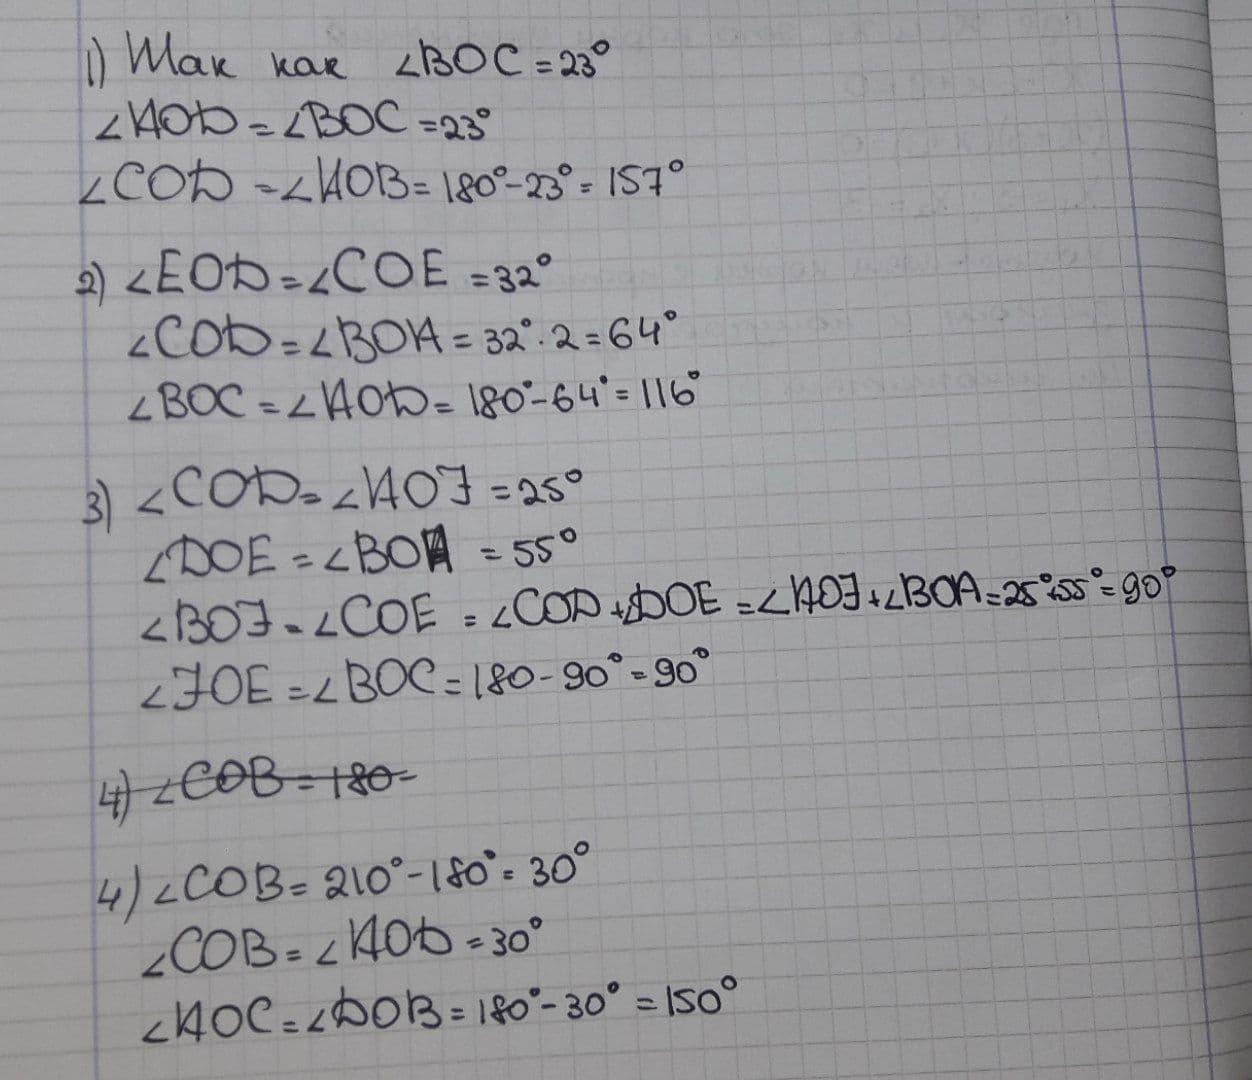 1) Так как ∠BOC = 23°
∠AOD = ∠BOC = 23°
∠COD = ∠AOB = 180° - 23° = 157°
2) ∠EOD = ∠COE = 32°
∠COD = ∠BOA = 32° · 2 = 64°
∠BOC = ∠AOD = 180° - 64° = 116°
3) ∠COD = ∠AOF = 25°
∠DOE = ∠BOA = 55°
∠BOF = ∠COE = ∠COD + ∠DOE = ∠AOF + ∠BOA = 25° + 55° = 90°
∠FOE = ∠BOC = 180 - 90° = 90°
4) ∠COB = 180 -
4) ∠COB = 210° - 180° = 30°
∠COB = ∠AOD = 30°
∠AOC = ∠DOB = 180° - 30° = 150°